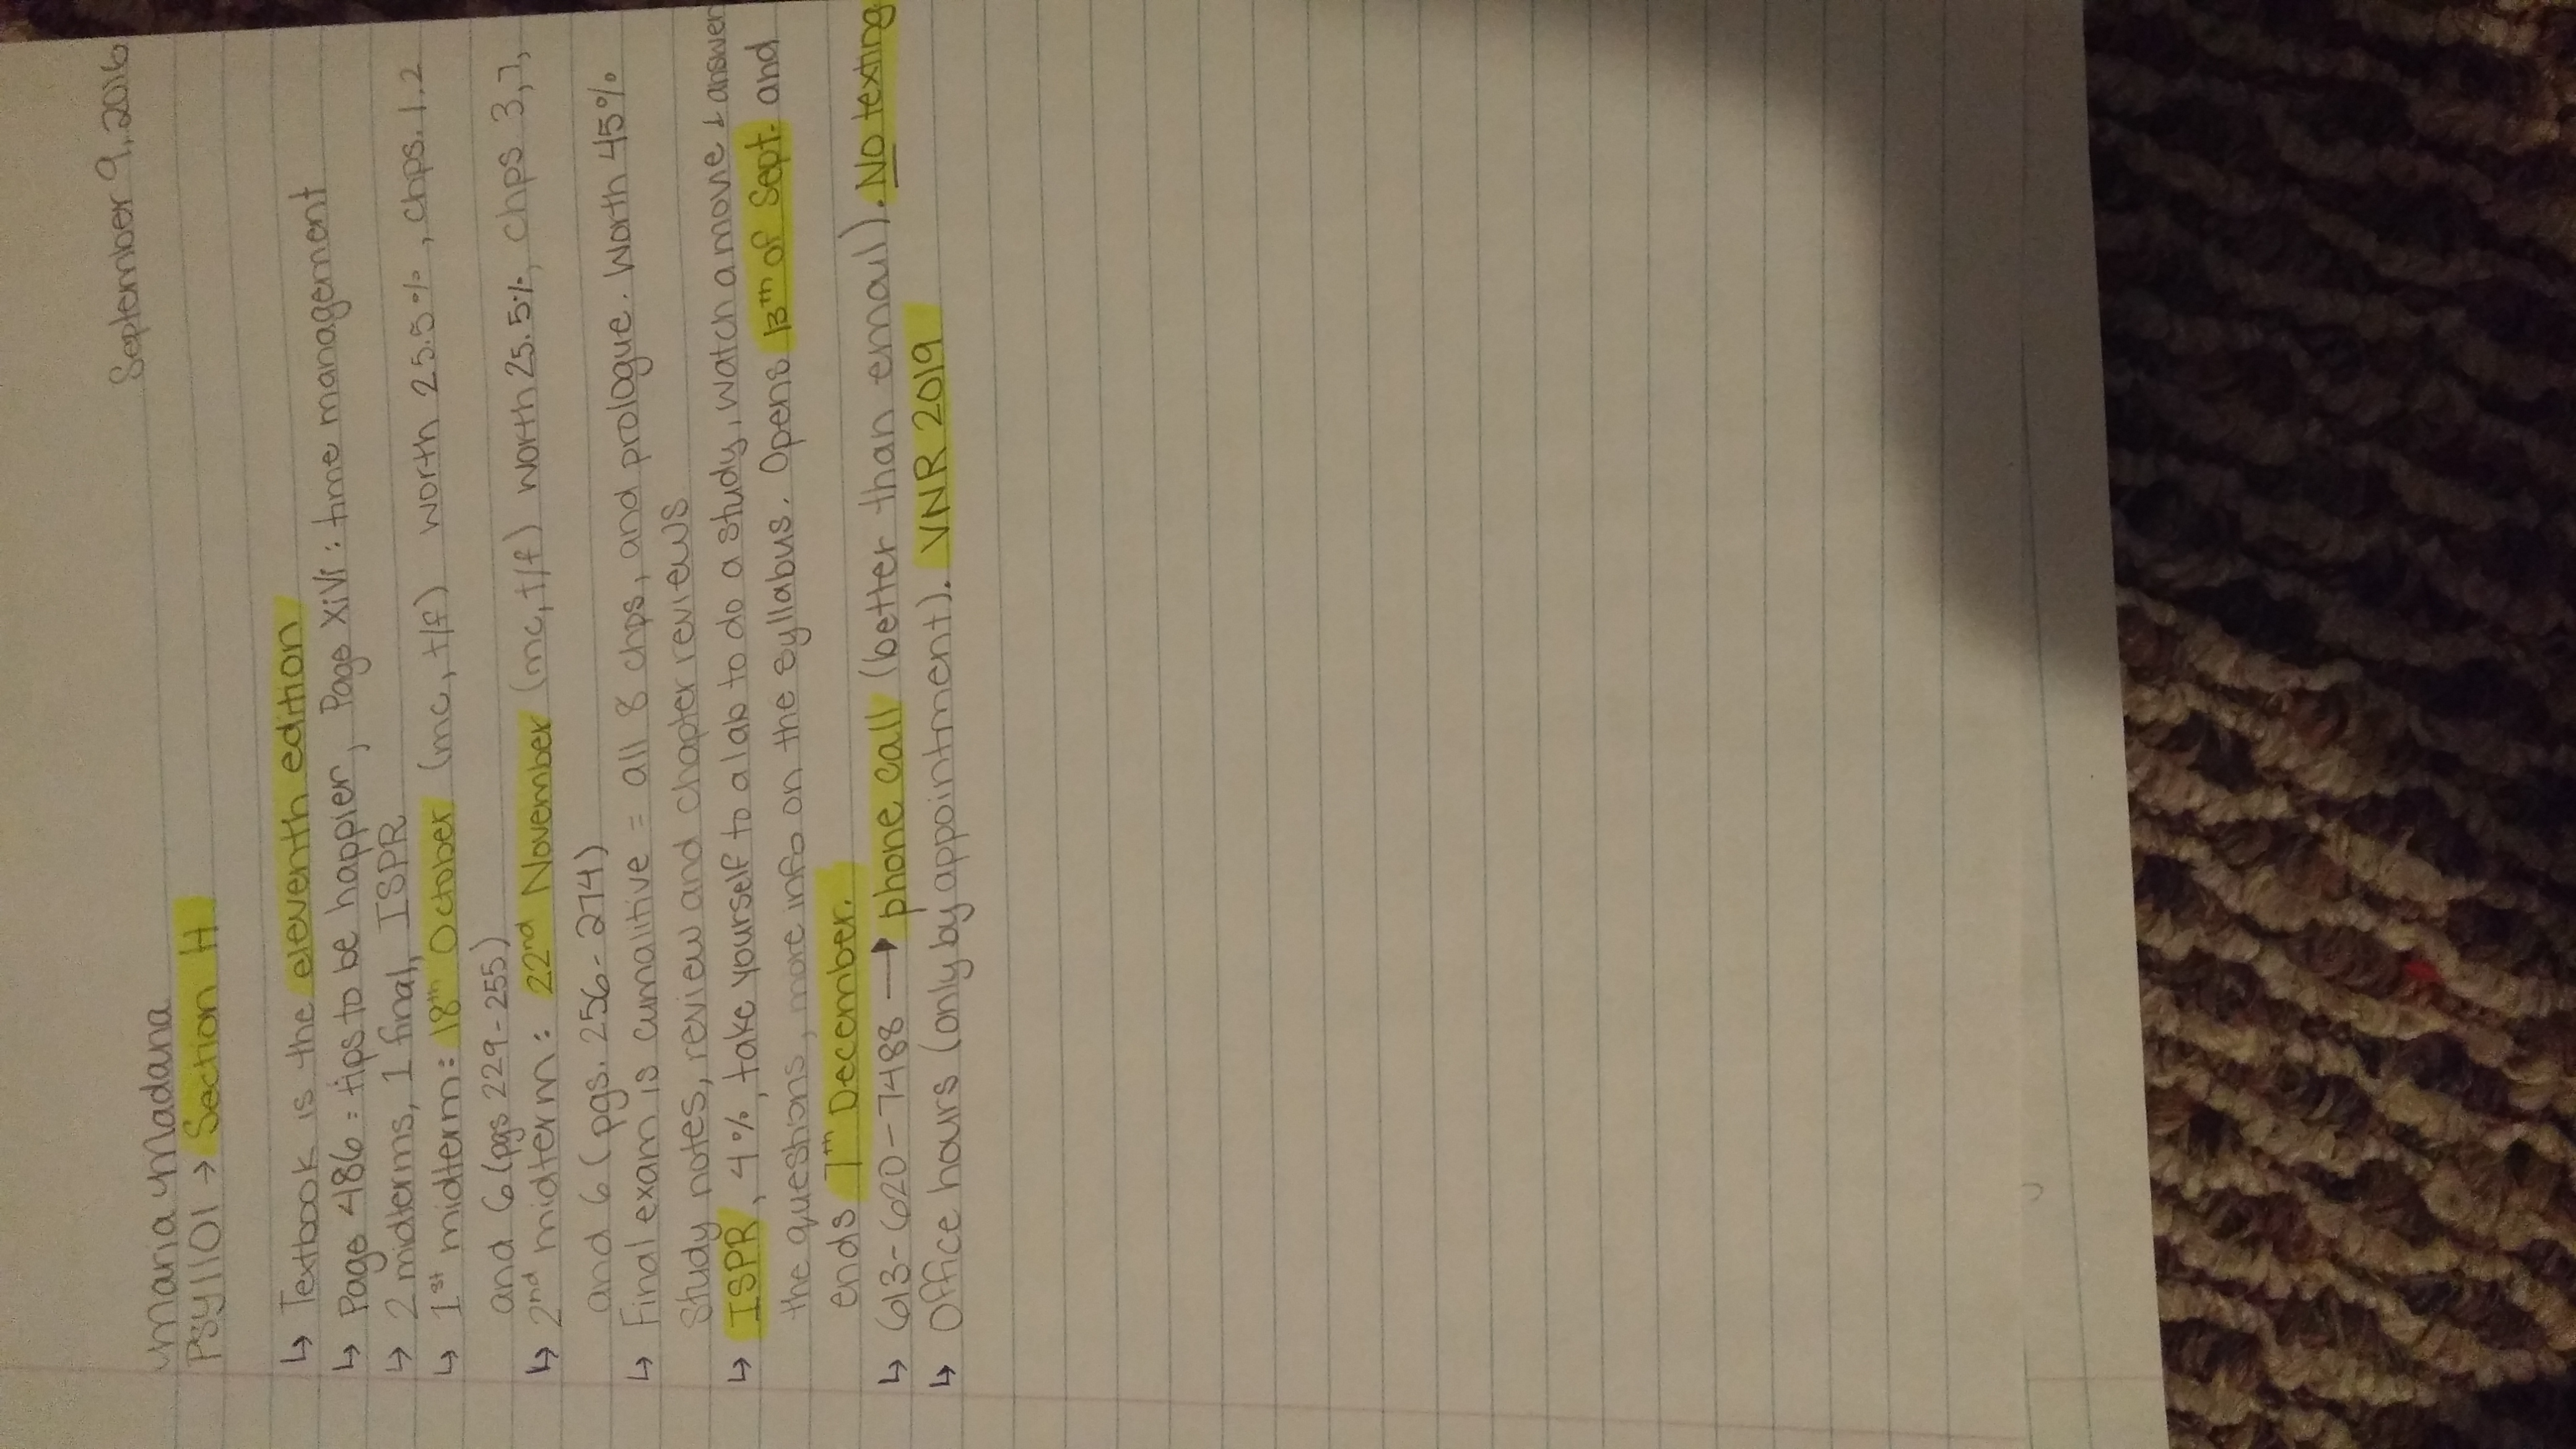 September 9, 2016
Maria Madana
PSY1101 → Section H
↳ Textbook is the eleventh edition
↳ Page 486 = tips to be happier, Page xivi: time management
↳ 2 midterms, 1 final, ISPR
↳ 1st midterm: 18th October (mc, t/f) worth 25.5%, chps. 1.2
and 6 (pgs 229-255)
↳ 2nd midterm: 22nd November (mc, t/f) worth 25.5%, chps 3,7,
and 6 (pgs. 256-274)
↳ Final exam is cumalitive = all 8 chps, and prologue. Worth 45%.
Study notes, review and chapter reviews
↳ ISPR, 4%, take yourself to a lab to do a study, watch a movie & answer
the questions, more info on the syllabus. Opens 13th of Sept. and
ends 7th December.
↳ 613-620-7488 → phone call (better than email). No texting
↳ Office hours (only by appointment). VNR 2019